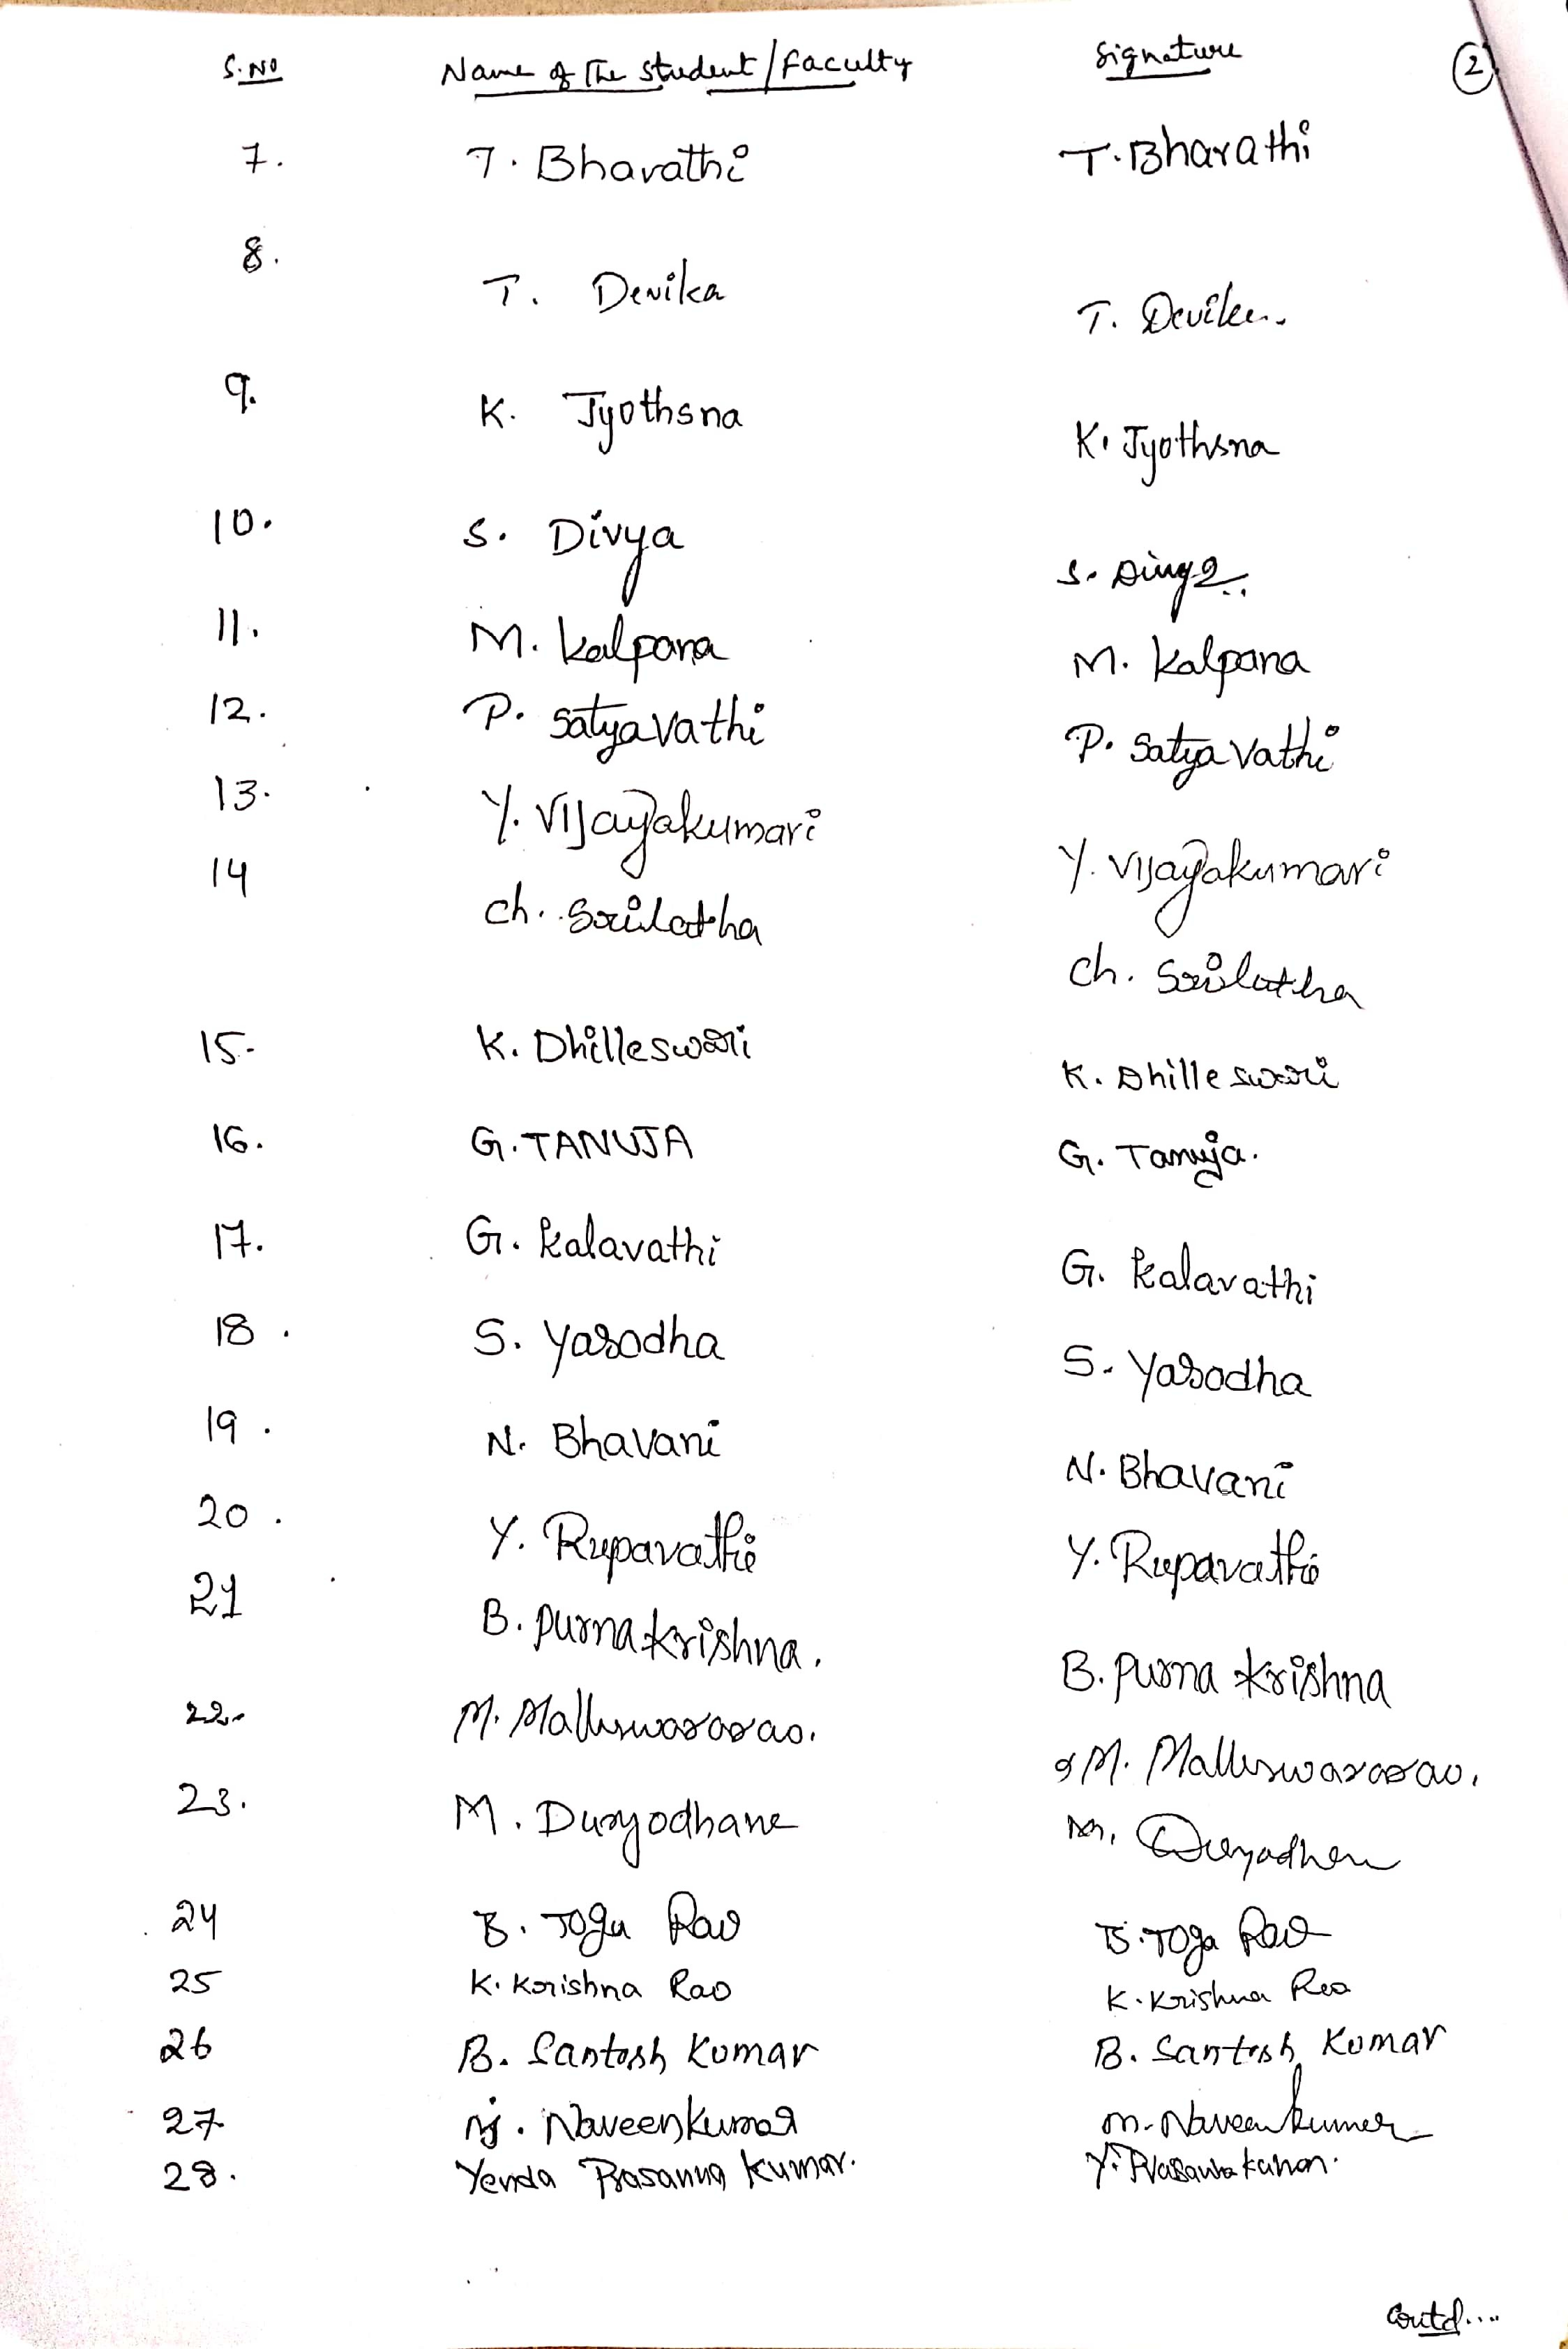 S.No Name of The student/faculty Signature 2
7. T. Bharathi T. Bharathi
8. T. Devika T. Devika
9. K. Jyothsna K. Jyothsna
10. S. Divya S. Divya
11. M. Kalpana M. Kalpana
12. P. Satyavathi P. Satyavathi
13. Y. Vijayakumari Y. Vijayakumari
14 Ch. Srilatha Ch. Srilatha
15. K. Dhilleswari K. Dhilleswari
16. G. TANUJA G. Tanuja.
17. G. Kalavathi G. Kalavathi
18. S. Yasodha S. Yasodha
19. N. Bhavani N. Bhavani
20. Y. Rupavathi Y. Rupavathi
21 B. Purna Krishna. B. Purna Krishna
22. M. Malleswararao. M. Malleswararao.
23. M. Duryodhana M.
24 B. Joga Rao B. Joga Rao
25 K. Krishna Rao K. Krishna Rao
26 B. Santosh Kumar B. Santosh Kumar
27 M. Naveenkumar M. Naveenkumar
28. Yenda Prasanna Kumar. Y. Prasanna
Contd....